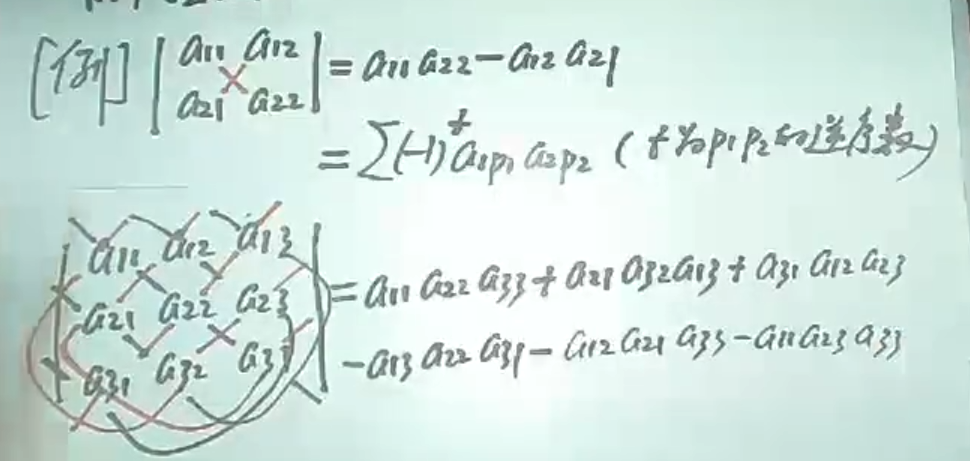 [例] | a11 a12 | = a11 a22 - a12 a21
| a21 a22 |
= Σ(-1)^t a1p1 a2p2 ( t为p1p2的逆序数 )
| a11 a12 a13 |
| a21 a22 a23 | = a11 a22 a33 + a21 a32 a13 + a31 a12 a23
| a31 a32 a33 | - a13 a22 a31 - a12 a21 a33 - a11 a23 a33